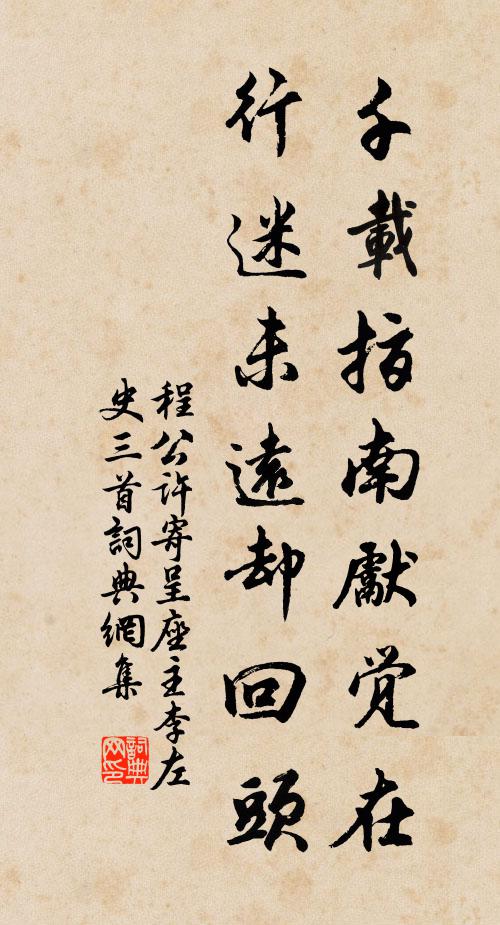 千載指南獻觉在
行迷未遠却回頭
程公許寄呈座主李左
史三首詞典網集
詞典
网印